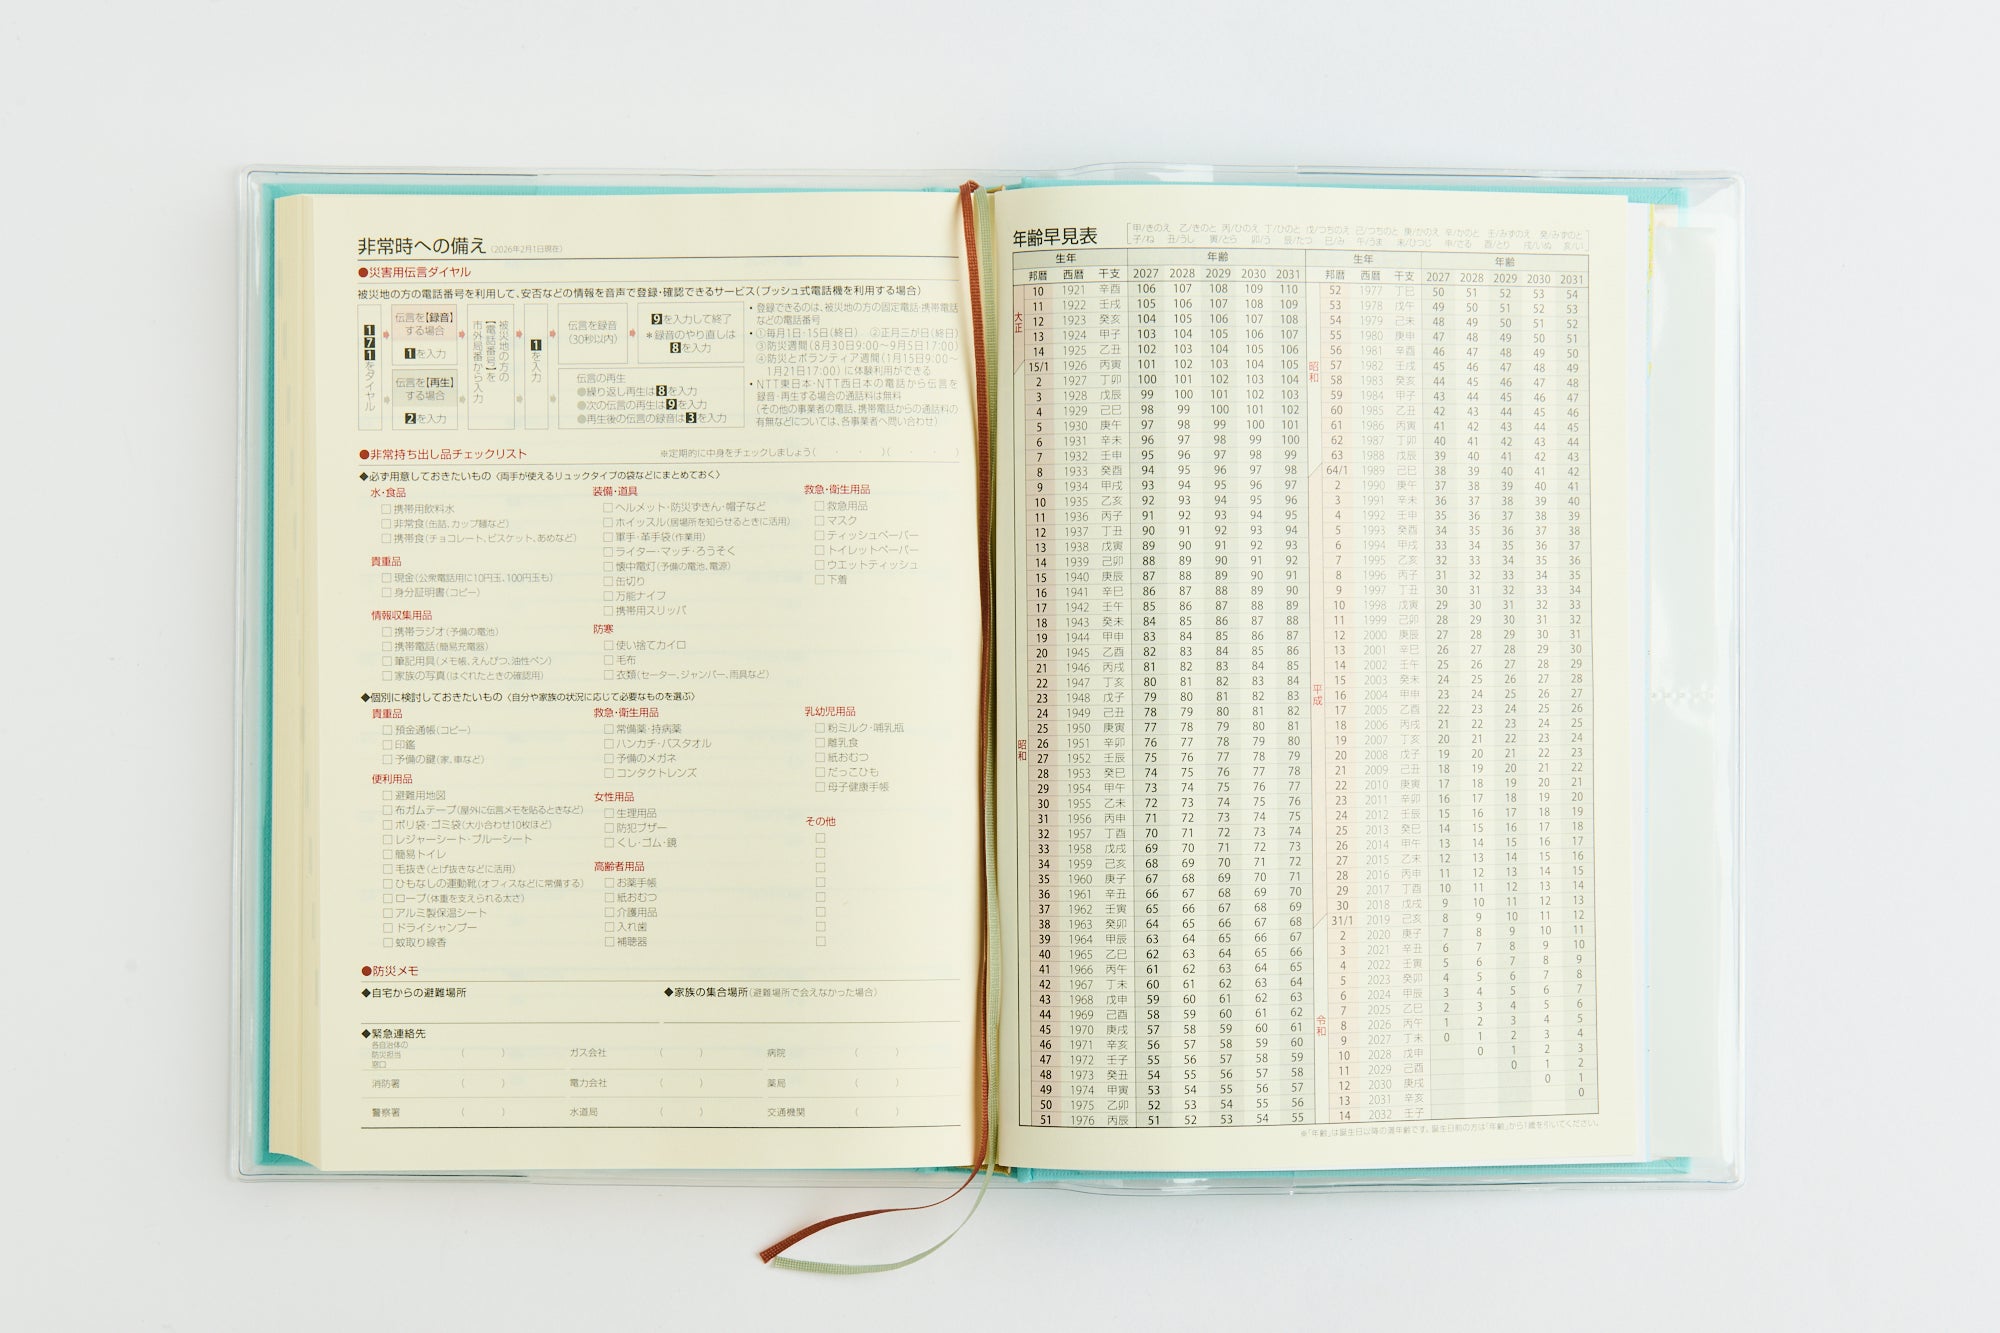 非常時への備え（2026年2月1日現在）
●災害用伝言ダイヤル
被災地の方の電話番号を利用して、安否などの情報を音声で登録・確認できるサービス（プッシュ式電話機を利用する場合）
171をダイヤル
伝言を【録音】
する場合
1を入力
伝言を【再生】
する場合
2を入力
被災地の方の
【電話番号】を
市外局番から入力
1を入力
伝言を録音
（30秒以内）
9を入力して終了
＊録音のやり直しは
8を入力
伝言の再生
●繰り返し再生は8を入力
●次の伝言の再生は9を入力
●再生後の伝言の録音は3を入力
・登録できるのは、被災地の方の固定電話・携帯電話
などの電話番号
・①毎月1日・15日（終日） ②正月三が日（終日）
③防災週間（8月30日9:00〜9月5日17:00）
④防災とボランティア週間（1月15日9:00〜
1月21日17:00）に体験利用ができる
・NTT東日本・NTT西日本の電話から伝言を
録音・再生する場合の通話料は無料
（その他の事業者の電話、携帯電話からの通話料の
有無などについては、各事業者へ問い合わせ）
●非常持ち出し品チェックリスト ※定期的に中身をチェックしましょう（ ・ ・ ）（ ・ ・ ）
◆必ず用意しておきたいもの〈両手が使えるリュックタイプの袋などにまとめておく〉
水・食品
□携帯用飲料水
□非常食（缶詰、カップ麺など）
□携帯食（チョコレート、ビスケット、あめなど）
貴重品
□現金（公衆電話用に10円玉、100円玉も）
□身分証明書（コピー）
情報収集用品
□携帯ラジオ（予備の電池）
□携帯電話（簡易充電器）
□筆記用具（メモ帳、えんぴつ、油性ペン）
□家族の写真（はぐれたときの確認用）
装備・道具
□ヘルメット・防災ずきん・帽子など
□ホイッスル（居場所を知らせるときに活用）
□軍手・革手袋（作業用）
□ライター・マッチ・ろうそく
□懐中電灯（予備の電池、電源）
□缶切り
□万能ナイフ
□携帯用スリッパ
防寒
□使い捨てカイロ
□毛布
□衣類（セーター、ジャンパー、雨具など）
救急・衛生用品
□救急用品
□マスク
□ティッシュペーパー
□トイレットペーパー
□ウエットティッシュ
□下着
◆個別に検討しておきたいもの〈自分や家族の状況に応じて必要なものを選ぶ〉
貴重品
□預金通帳（コピー）
□印鑑
□予備の鍵（家、車など）
便利用品
□避難用地図
□布ガムテープ（屋外に伝言メモを貼るときなど）
□ポリ袋・ゴミ袋（大小合わせ10枚ほど）
□レジャーシート・ブルーシート
□簡易トイレ
□毛抜き（とげ抜きなどに活用）
□ひもなしの運動靴（オフィスなどに常備する）
□ロープ（体重を支えられる太さ）
□アルミ製保温シート
□ドライシャンプー
□蚊取り線香
救急・衛生用品
□常備薬・持病薬
□ハンカチ・バスタオル
□予備のメガネ
□コンタクトレンズ
女性用品
□生理用品
□防犯ブザー
□くし・ゴム・鏡
高齢者用品
□お薬手帳
□紙おむつ
□介護用品
□入れ歯
□補聴器
乳幼児用品
□粉ミルク・哺乳瓶
□離乳食
□紙おむつ
□だっこひも
□母子健康手帳
その他
□
□
□
□
□
□
□
□
●防災メモ
◆自宅からの避難場所 ◆家族の集合場所（避難場所で会えなかった場合）
◆緊急連絡先
各自治体の
防災担当
窓口 （ ） ガス会社 （ ） 病院 （ ）
消防署 （ ） 電力会社 （ ） 薬局 （ ）
警察署 （ ） 水道局 （ ） 交通機関 （ ）
年齢早見表
甲/きのえ 乙/きのと 丙/ひのえ 丁/ひのと 戊/つちのえ 己/つちのと 庚/かのえ 辛/かのと 壬/みずのえ 癸/みずのと
子/ね 丑/うし 寅/とら 卯/う 辰/たつ 巳/み 午/うま 未/ひつじ 申/さる 酉/とり 戌/いぬ 亥/い
生年 年齢
邦暦 西暦 干支 2027 2028 2029 2030 2031
大正
10 1921 辛酉 106 107 108 109 110
11 1922 壬戌 105 106 107 108 109
12 1923 癸亥 104 105 106 107 108
13 1924 甲子 103 104 105 106 107
14 1925 乙丑 102 103 104 105 106
15/1 1926 丙寅 101 102 103 104 105
昭和
2 1927 丁卯 100 101 102 103 104
3 1928 戊辰 99 100 101 102 103
4 1929 己巳 98 99 100 101 102
5 1930 庚午 97 98 99 100 101
6 1931 辛未 96 97 98 99 100
7 1932 壬申 95 96 97 98 99
8 1933 癸酉 94 95 96 97 98
9 1934 甲戌 93 94 95 96 97
10 1935 乙亥 92 93 94 95 96
11 1936 丙子 91 92 93 94 95
12 1937 丁丑 90 91 92 93 94
13 1938 戊寅 89 90 91 92 93
14 1939 己卯 88 89 90 91 92
15 1940 庚辰 87 88 89 90 91
16 1941 辛巳 86 87 88 89 90
17 1942 壬午 85 86 87 88 89
18 1943 癸未 84 85 86 87 88
19 1944 甲申 83 84 85 86 87
20 1945 乙酉 82 83 84 85 86
21 1946 丙戌 81 82 83 84 85
22 1947 丁亥 80 81 82 83 84
23 1948 戊子 79 80 81 82 83
24 1949 己丑 78 79 80 81 82
25 1950 庚寅 77 78 79 80 81
26 1951 辛卯 76 77 78 79 80
27 1952 壬辰 75 76 77 78 79
28 1953 癸巳 74 75 76 77 78
29 1954 甲午 73 74 75 76 77
30 1955 乙未 72 73 74 75 76
31 1956 丙申 71 72 73 74 75
32 1957 丁酉 70 71 72 73 74
33 1958 戊戌 69 70 71 72 73
34 1959 己亥 68 69 70 71 72
35 1960 庚子 67 68 69 70 71
36 1961 辛丑 66 67 68 69 70
37 1962 壬寅 65 66 67 68 69
38 1963 癸卯 64 65 66 67 68
39 1964 甲辰 63 64 65 66 67
40 1965 乙巳 62 63 64 65 66
41 1966 丙午 61 62 63 64 65
42 1967 丁未 60 61 62 63 64
43 1968 戊申 59 60 61 62 63
44 1969 己酉 58 59 60 61 62
45 1970 庚戌 57 58 59 60 61
46 1971 辛亥 56 57 58 59 60
47 1972 壬子 55 56 57 58 59
48 1973 癸丑 54 55 56 57 58
49 1974 甲寅 53 54 55 56 57
50 1975 乙卯 52 53 54 55 56
51 1976 丙辰 51 52 53 54 55
生年 年齢
邦暦 西暦 干支 2027 2028 2029 2030 2031
昭和
52 1977 丁巳 50 51 52 53 54
53 1978 戊午 49 50 51 52 53
54 1979 己未 48 49 50 51 52
55 1980 庚申 47 48 49 50 51
56 1981 辛酉 46 47 48 49 50
57 1982 壬戌 45 46 47 48 49
58 1983 癸亥 44 45 46 47 48
59 1984 甲子 43 44 45 46 47
60 1985 乙丑 42 43 44 45 46
61 1986 丙寅 41 42 43 44 45
62 1987 丁卯 40 41 42 43 44
63 1988 戊辰 39 40 41 42 43
64/1 1989 己巳 38 39 40 41 42
平成
2 1990 庚午 37 38 39 40 41
3 1991 辛未 36 37 38 39 40
4 1992 壬申 35 36 37 38 39
5 1993 癸酉 34 35 36 37 38
6 1994 甲戌 33 34 35 36 37
7 1995 乙亥 32 33 34 35 36
8 1996 丙子 31 32 33 34 35
9 1997 丁丑 30 31 32 33 34
10 1998 戊寅 29 30 31 32 33
11 1999 己卯 28 29 30 31 32
12 2000 庚辰 27 28 29 30 31
13 2001 辛巳 26 27 28 29 30
14 2002 壬午 25 26 27 28 29
15 2003 癸未 24 25 26 27 28
16 2004 甲申 23 24 25 26 27
17 2005 乙酉 22 23 24 25 26
18 2006 丙戌 21 22 23 24 25
19 2007 丁亥 20 21 22 23 24
20 2008 戊子 19 20 21 22 23
21 2009 己丑 18 19 20 21 22
22 2010 庚寅 17 18 19 20 21
23 2011 辛卯 16 17 18 19 20
24 2012 壬辰 15 16 17 18 19
25 2013 癸巳 14 15 16 17 18
26 2014 甲午 13 14 15 16 17
27 2015 乙未 12 13 14 15 16
28 2016 丙申 11 12 13 14 15
29 2017 丁酉 10 11 12 13 14
30 2018 戊戌 9 10 11 12 13
31/1 2019 己亥 8 9 10 11 12
令和
2 2020 庚子 7 8 9 10 11
3 2021 辛丑 6 7 8 9 10
4 2022 壬寅 5 6 7 8 9
5 2023 癸卯 4 5 6 7 8
6 2024 甲辰 3 4 5 6 7
7 2025 乙巳 2 3 4 5 6
8 2026 丙午 1 2 3 4 5
9 2027 丁未 0 1 2 3 4
10 2028 戊申 0 1 2 3
11 2029 己酉 0 1 2
12 2030 庚戌 0 1
13 2031 辛亥 0
14 2032 壬子
※「年齢」は誕生日以降の満年齢です。誕生日前の方は「年齢」から1歳を引いてください。